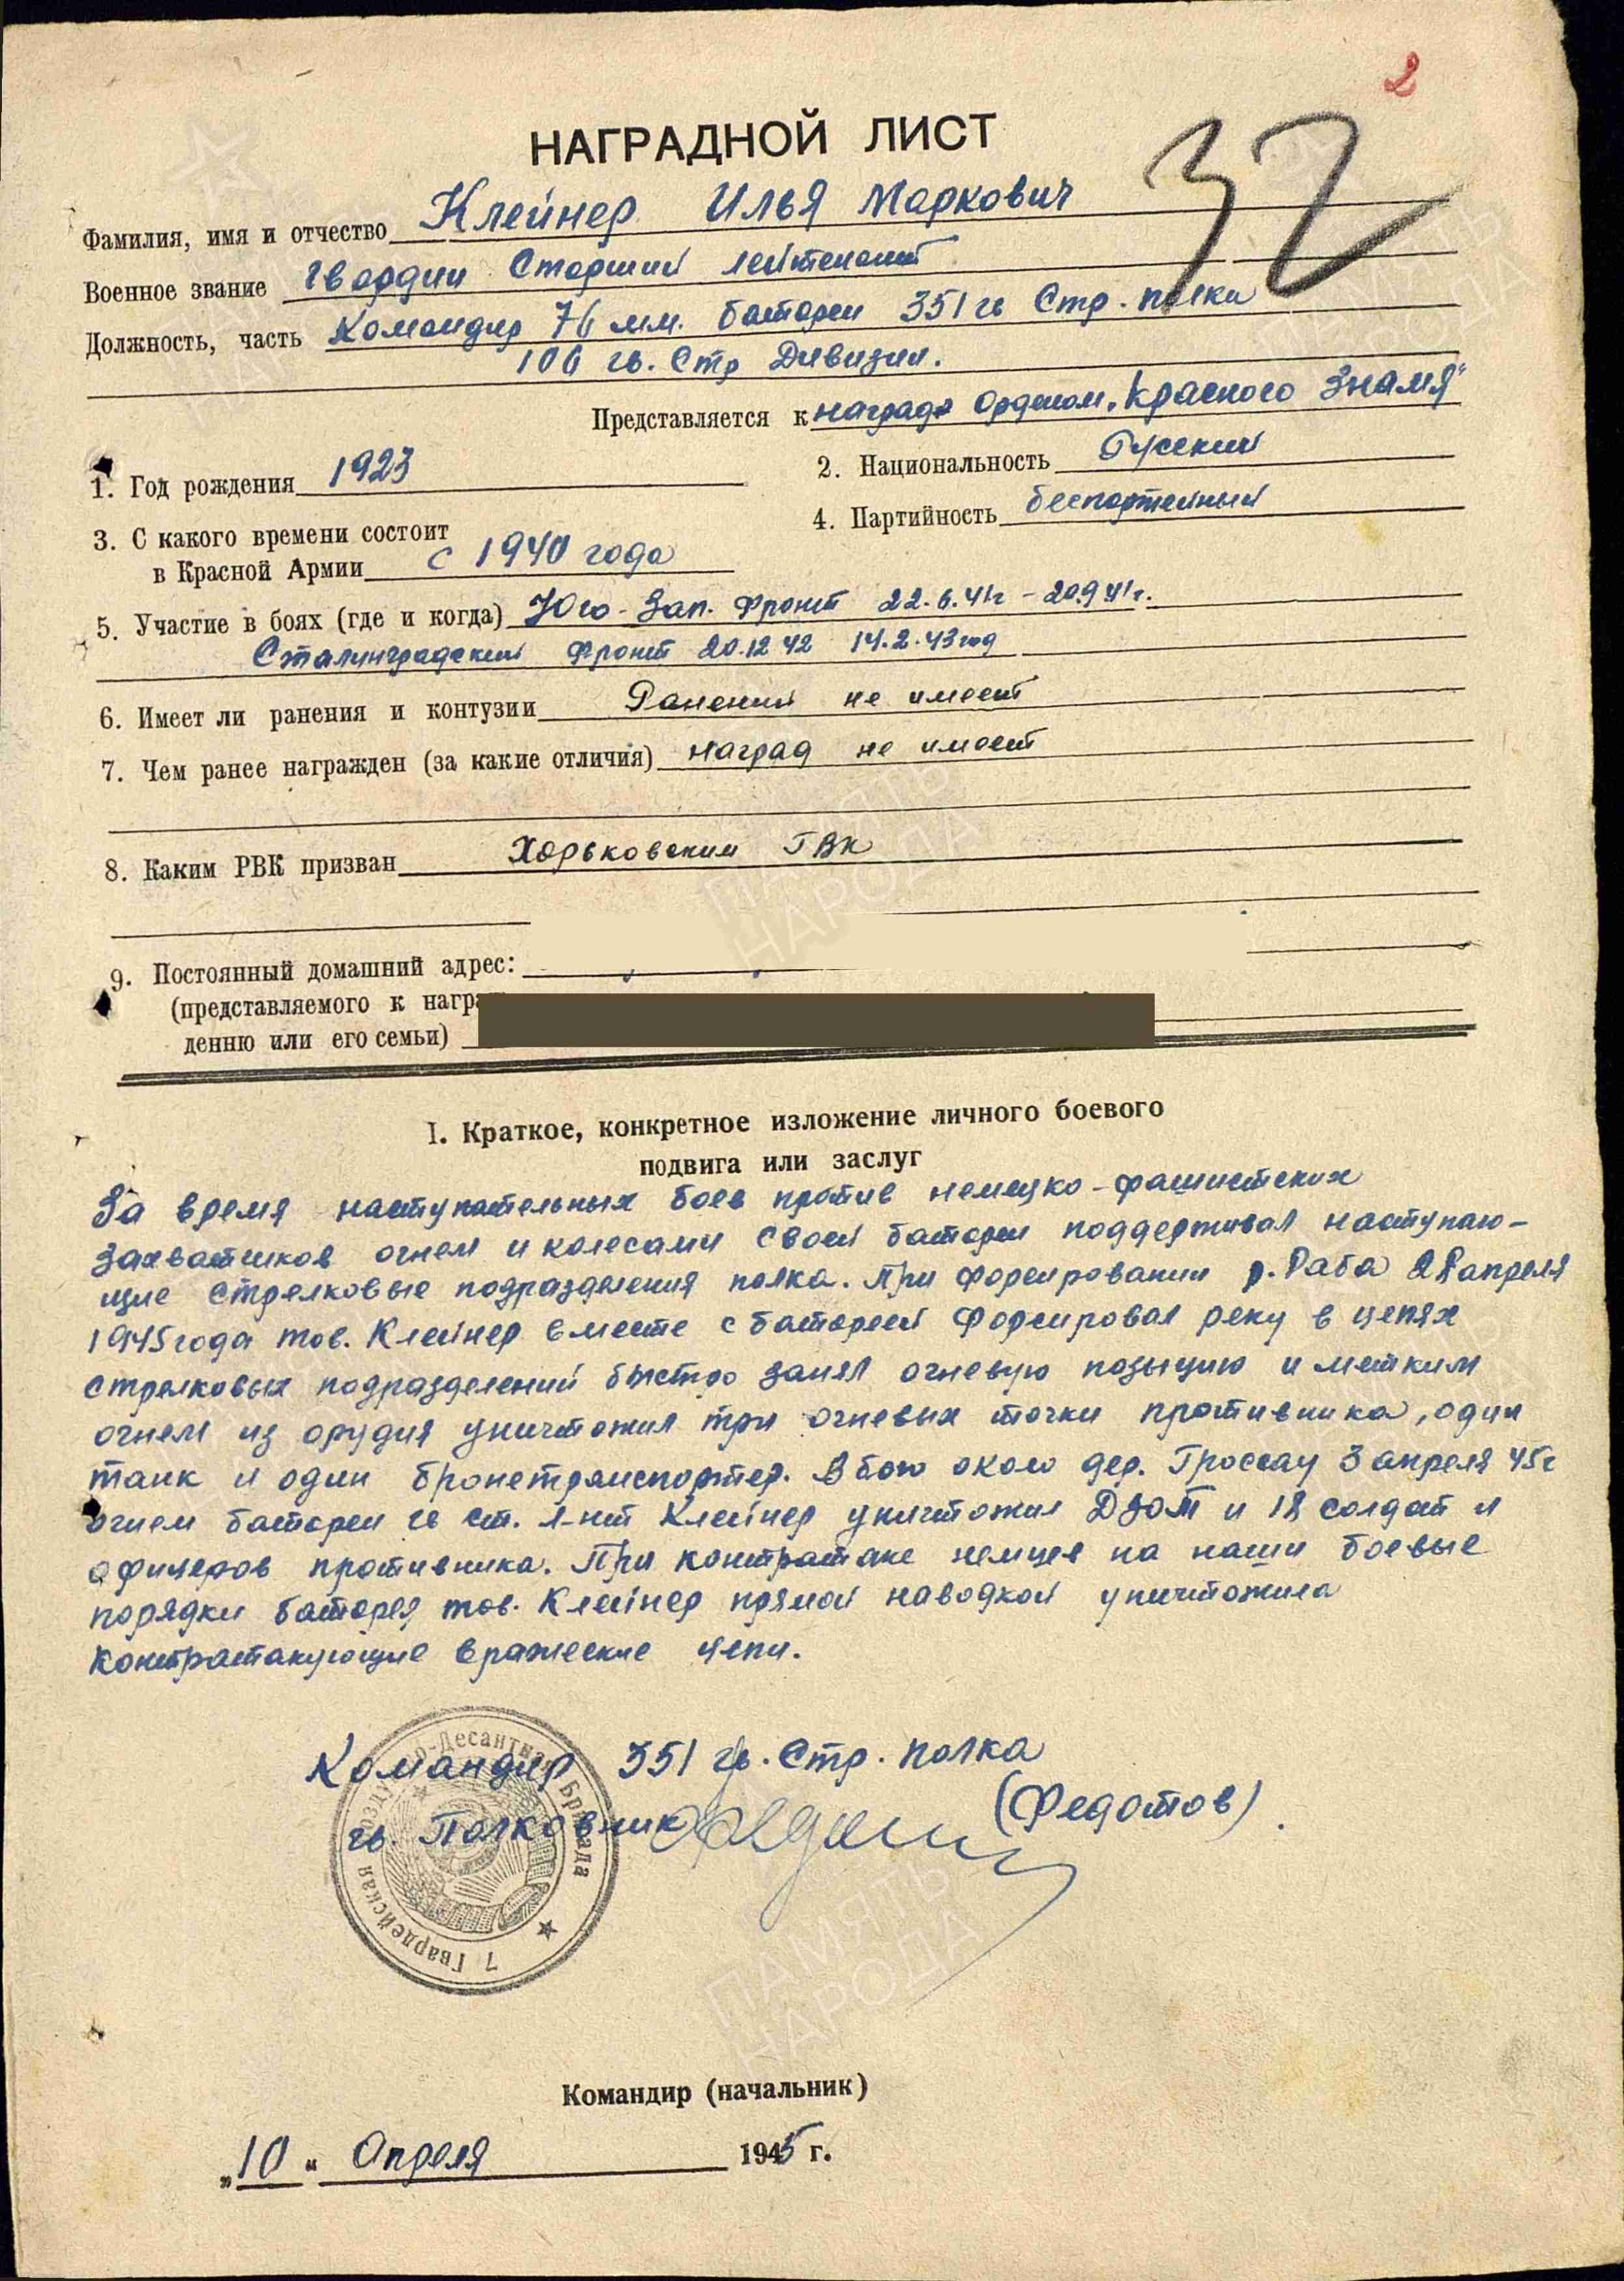 2
32
НАГРАДНОЙ ЛИСТ
Фамилия, имя и отчество Клейнер Илья Маркович
Военное звание Гвардии Старший лейтенант
Должность, часть Командир 76 мм. батареи 351 гв Стр. полка
106 гв. Стр Дивизии.
Представляется к награде Орденом „Красного Знамя"
1. Год рождения 1923
2. Национальность Русский
3. С какого времени состоит
в Красной Армии с 1940 года
4. Партийность беспартейный
5. Участие в боях (где и когда) Юго-Зап. Фронт 22.6.41г - 20.9.41г.
Сталинградский Фронт 20.12.42 14.2.43 год
6. Имеет ли ранения и контузии Ранений не имеет
7. Чем ранее награжден (за какие отличия) наград не имеет
8. Каким РВК призван Харьковским ГВК
9. Постоянный домашний адрес:
(представляемого к награ
денню или его семьи)
I. Краткое, конкретное изложение личного боевого
подвига или заслуг
За время наступательных боев против немецко-фашистских
захватчиков огнем и колесами своей батареи поддерживал наступаю-
щие стрелковые подразделения полка. При форсировании р. Раба 28 апреля
1945 года тов. Клейнер вместе с батареей форсировал реку в цепях
стрелковых подразделений быстро занял огневую позыцию и метким
огнем из орудия уничтожил три огневых точки противника, один
танк и один бронетранспортер. В бою около дер. Гроссау 3 апреля 45г
огнем батареи гв ст. л-нт Клейнер уничтожил ДЗОТ и 18 солдат и
офицеров противника. При контратаке немцев на наши боевые
порядки батарея тов. Клейнер прямой наводкой уничтожила
контратакующие вражеские цепи.
Командир 351 гв. Стр. полка
гв. Полковник (Федотов).
7 Гвардейская Воздушно-Десантная Бригада
Командир (начальник)
„10" Апреля 1945 г.
ПАМЯТЬ
НАРОДА